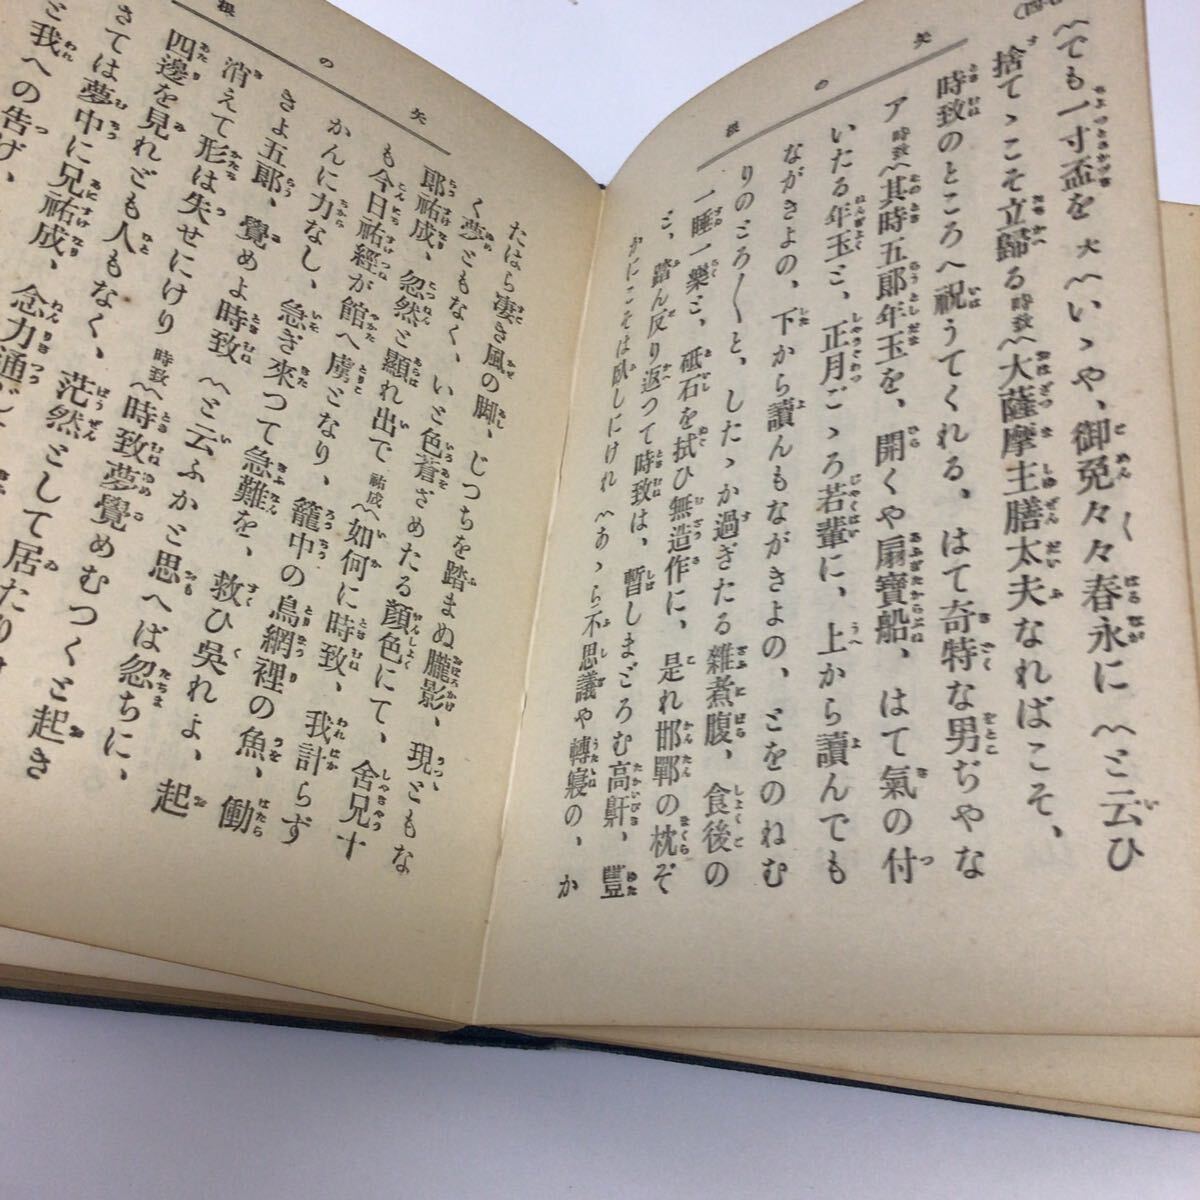 矢の根
〽でも一寸盃を 大〽いゝや、御免々々春永に 〽ミ云ひ
捨てゝこそ立歸る 時致〽大薩摩主膳太夫なればこそ、
時致のところへ祝うてくれる、はて奇特な男ぢやな
ア 時致〽其時五郎年玉を、開くや扇寶船、はて氣の付
いたる年玉ミ、正月ごゝろ若輩に、上から讀んでも
ながきよの、下から讀んもながきよの、ミをのねむ
りのミろ〳〵と、したゝか過ぎたる雜煮腹、食後の
一睡一樂ミ、砥石を拭ひ無造作に、是れ邯鄲の枕ぞ
ミ、踏ん反り返つて時致は、暫しまどろむ高鼾、豐
かにこそは臥しにけれ 〽あゝら不思議や轉寢の、か
矢の根
たはら凄き風の脚、じつちを踏まぬ朧影、現ともな
く夢ともなく、いと色蒼ざめたる顏色にて、舍兄十
郎祐成、忽然と顯れ出で 祐成〽如何に時致、我計らず
も今日祐經が館へ虜となり、籠中の鳥網裡の魚、働
かんに力なし、急ぎ來つて急難を、救ひ吳れよ、起
きよ五郎、覺めよ時致 〽ミ云ふかと思へば忽ちに、
消えて形は失せにけり 時致〽時致夢覺めむつくと起き
四邊を見れども人もなく、茫然として居たりけ
さては夢中に兄祐成、念力通じて
と我への告げ、